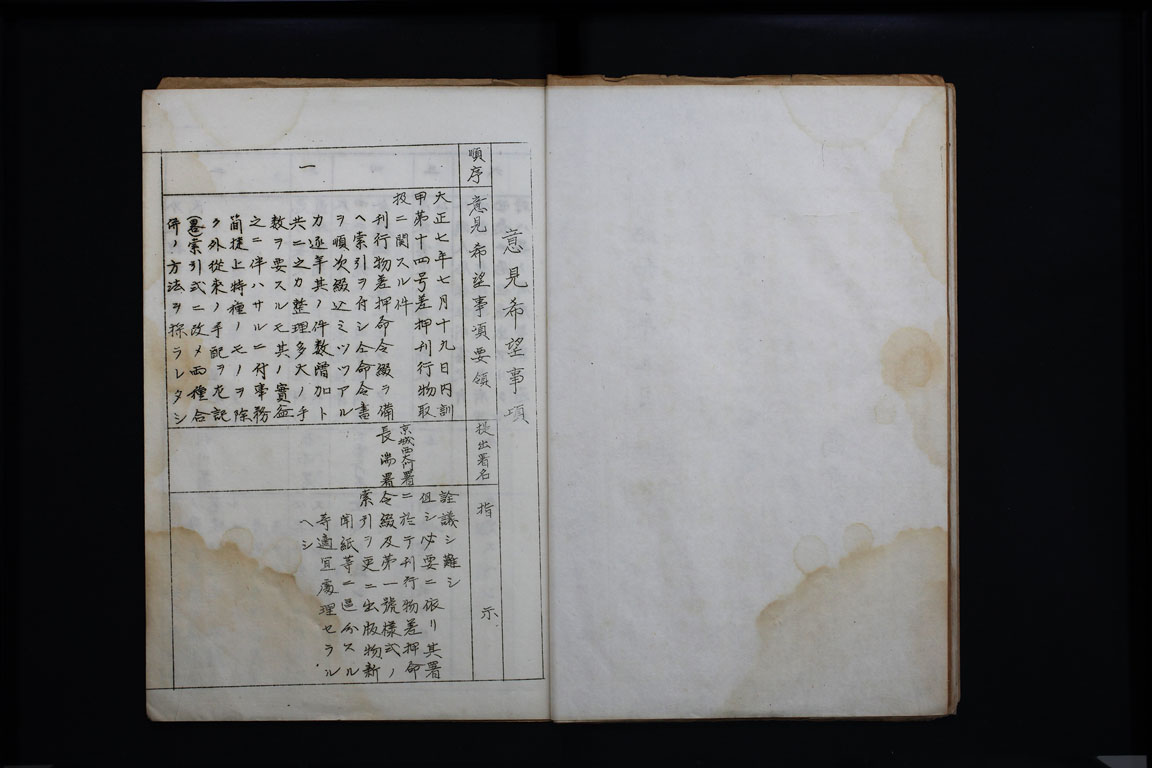 意見希望事項
順序
意見希望事項要領
提出署名
指示
一
大正七年七月十九日内訓
甲第十四号差押刊行物取
扱ニ関スル件
刊行物差押命令綴ヲ備
ヘ索引ヲ付シ仝命令書
ヲ順次綴込ミツツアル
カ逐年其ノ件数増加ト
共ニ之カ整理多大ノ手
数ヲ要スルモ其ノ實益
之ニ伴ハサルニ付事務
簡捷上特種ノモノヲ除
ク外従来ノ手配ヲ左記
索引式ニ改メ両種合
併ノ方法ヲ採ラレタシ
京城西大門署
長湍署
詮議シ難シ
但シ必要ニ依リ其署
ニ於テ刊行物差押命
令綴及第一號様式ノ
索引ヲ更ニ出版物新
聞紙等ニ區分スル
等適宜處理セラル
ヘシ